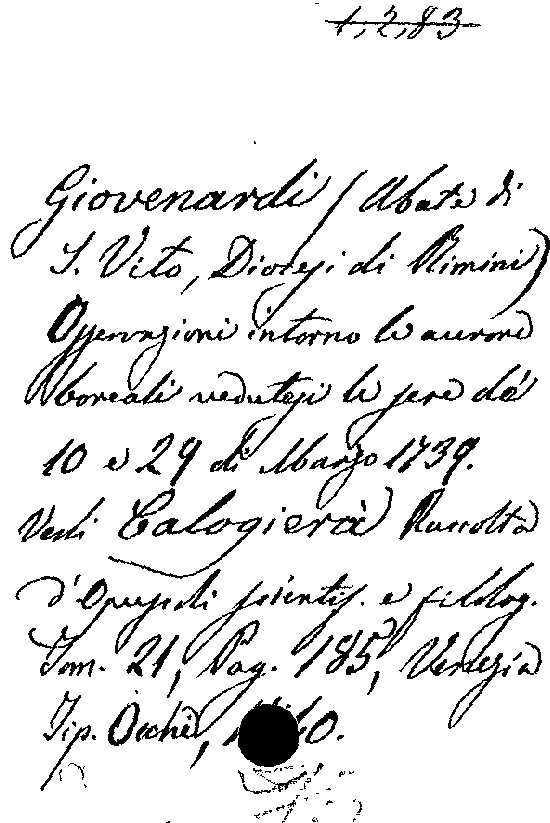 1,2,83
Giovenardi (Abate di
S. Vito, Diocesi di Rimini)
Osservazioni intorno le aurore
boreali vedutesi le sere de'
10 e 29 di Marzo 1739.
Vedi Calogierà Raccolta
d'Opuscoli scientif. e filolog.
Tom. 21, Pag. 185, Venezia
Tip. Occhi,